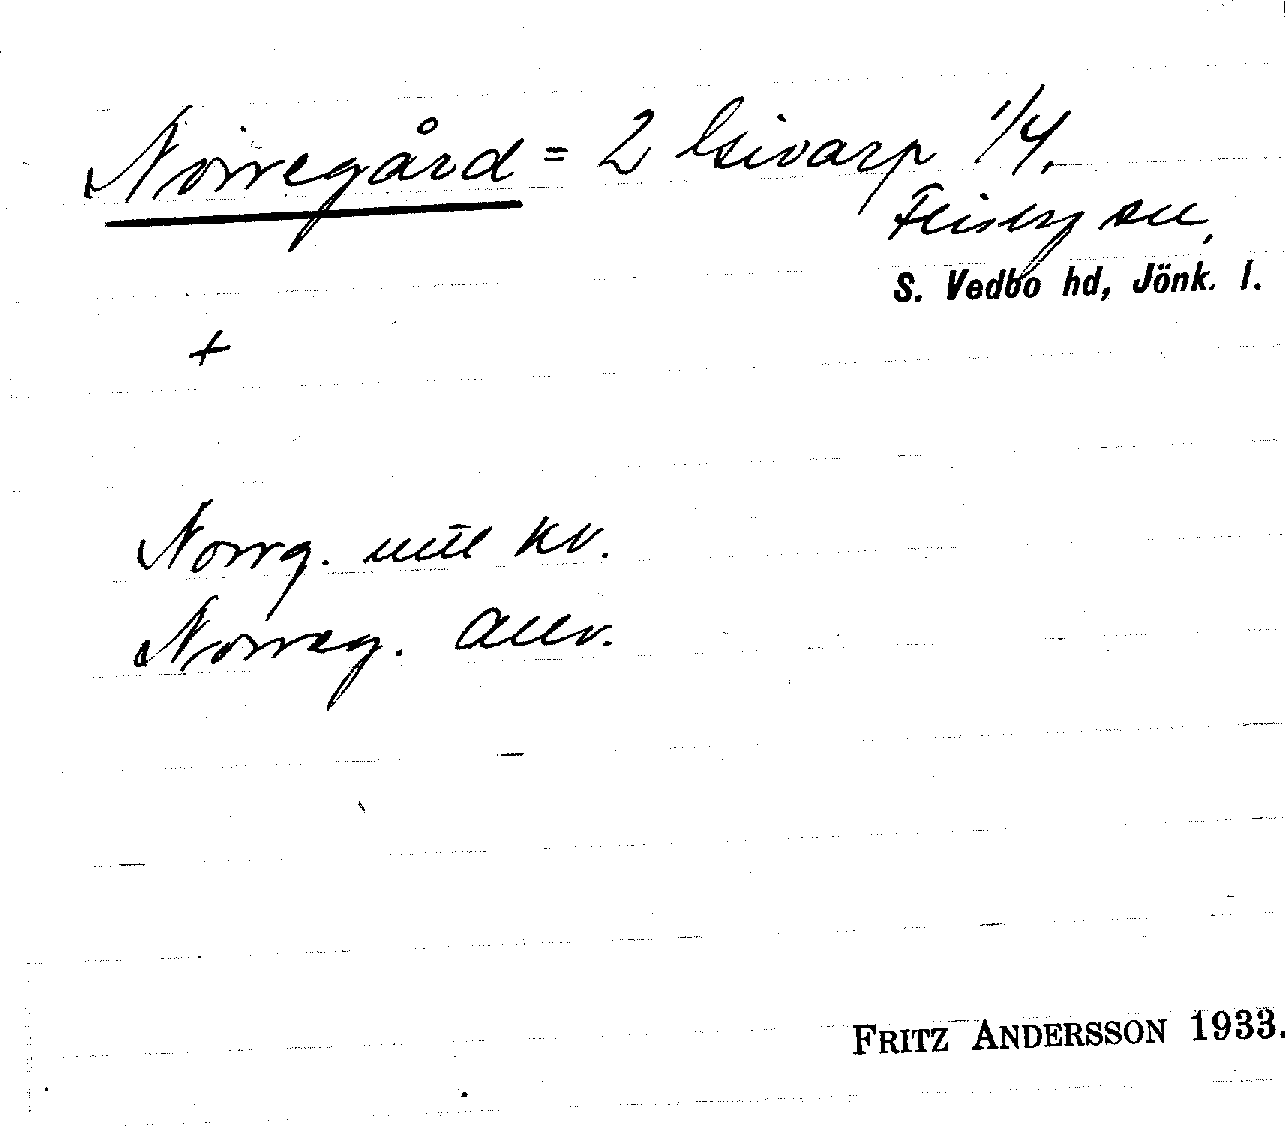 Norregård = 2 Esivarp 1/4.
Flisby sn,
S. Vedbo hd, Jönk. l.
+
Norrg. mtl kv.
Norreg. Allv.
FRITZ ANDERSSON 1933.